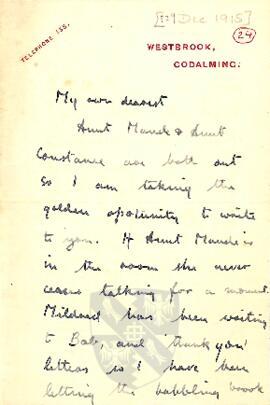 [29 Dec 1915]
24
TELEPHONE 135.
WESTBROOK,
GODALMING.
My own dearest
Aunt Maude & Aunt
Constance are both out
so I am taking the
golden opportunity to write
to you. If Aunt Maude is
in the room she never
ceases talking for a moment.
Mildred has been writing
to Bab, and 'thank you'
letters so I have been
letting the babbling brook